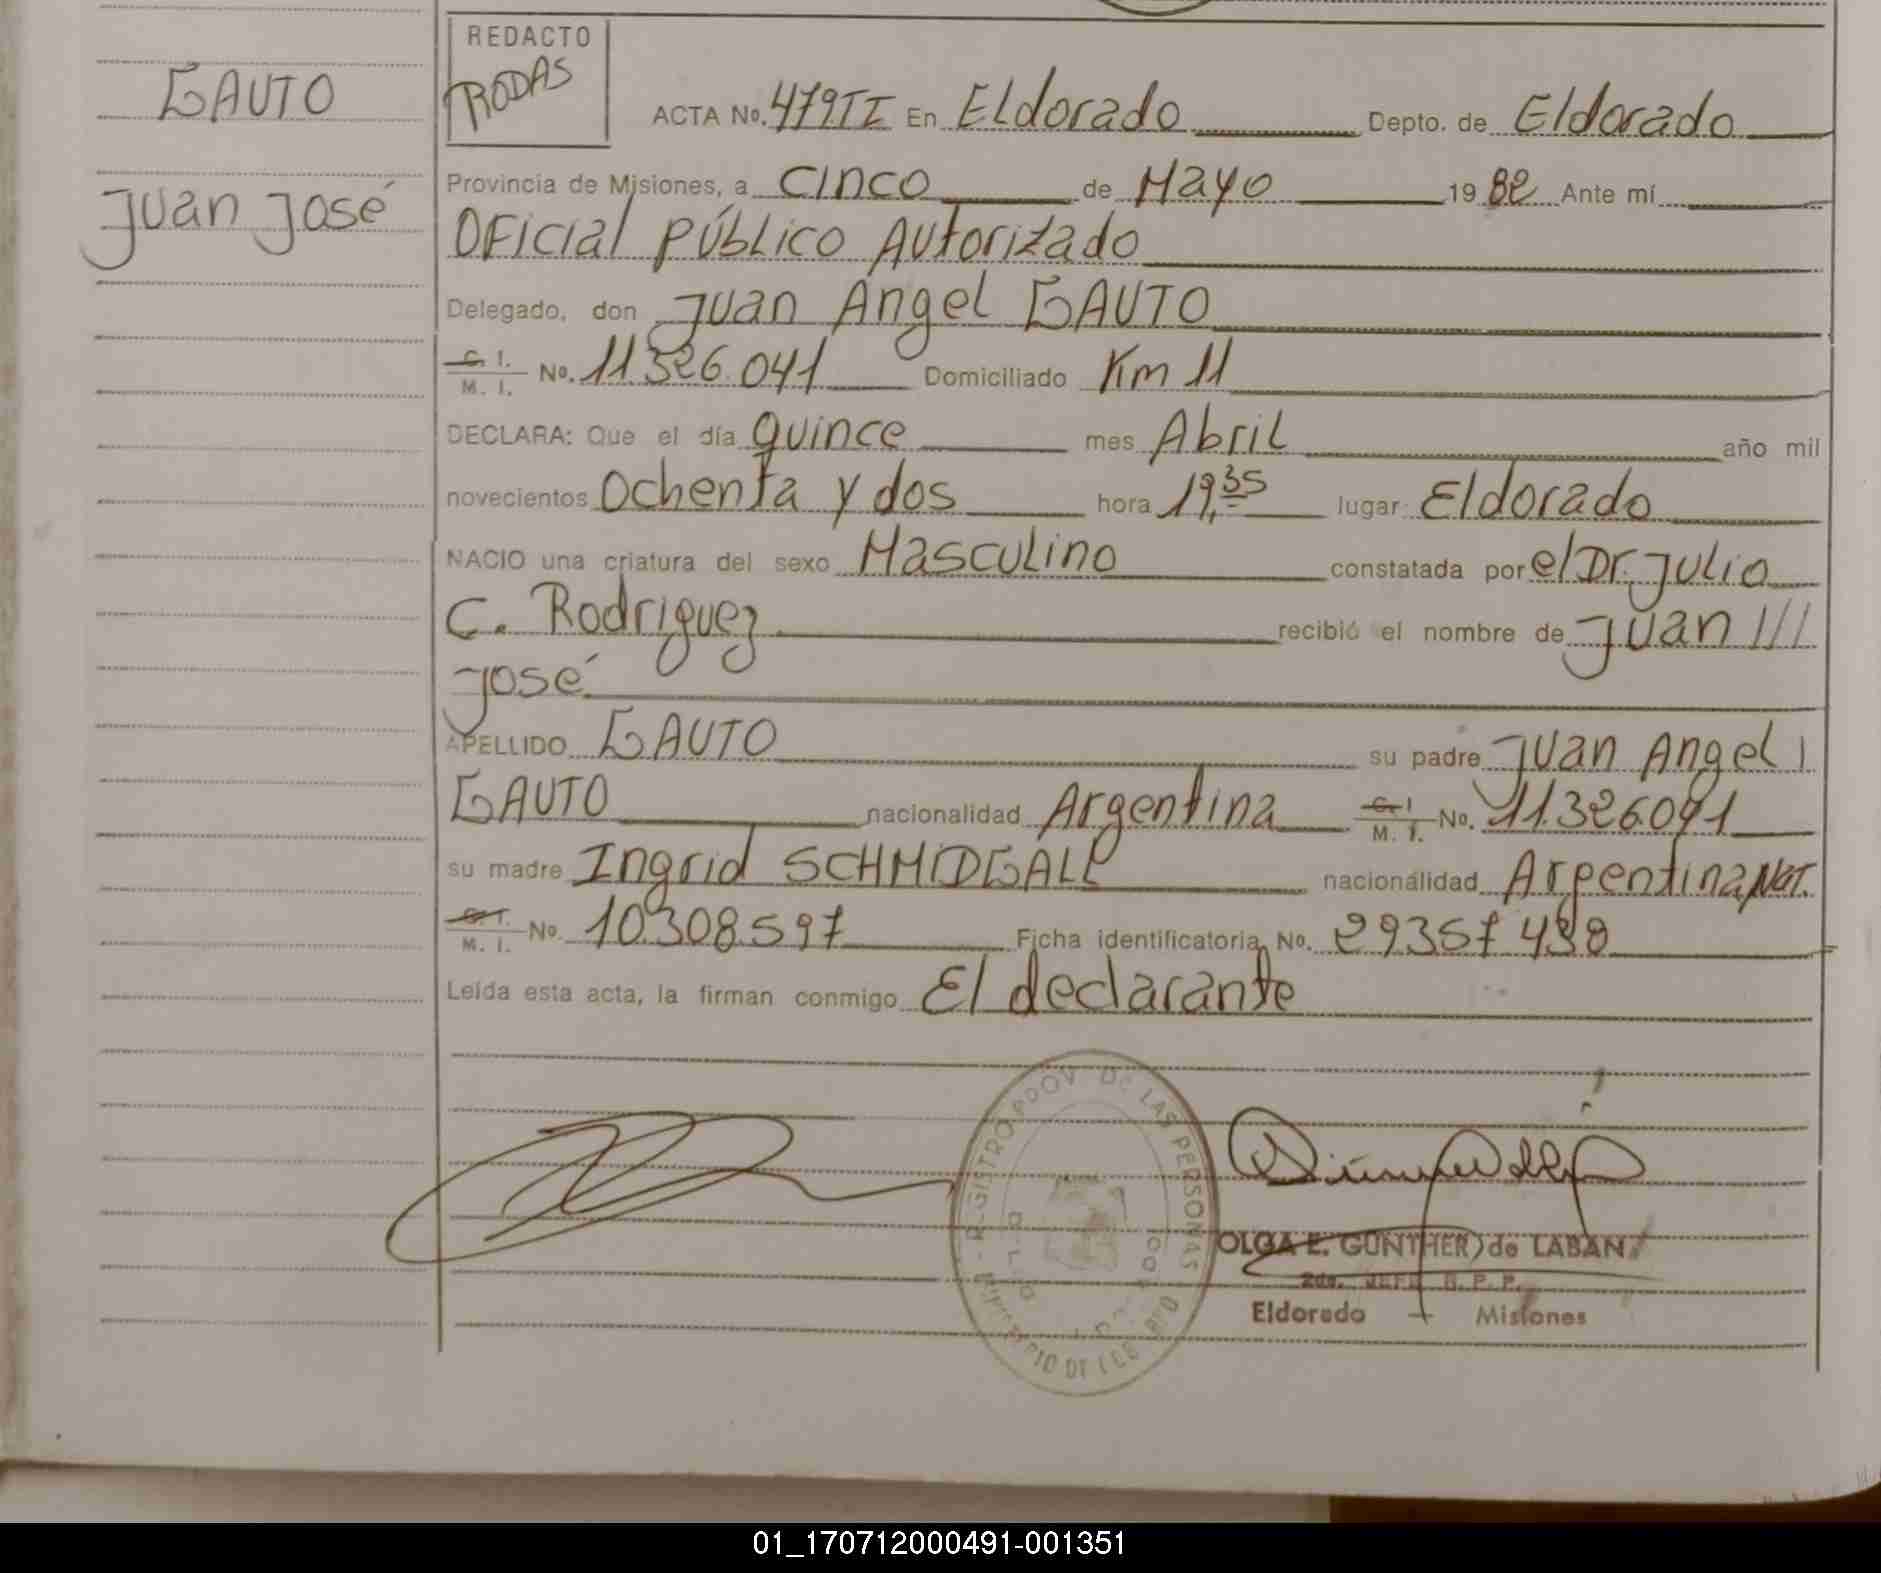 GAUTO
Juan José
REDACTO
RODAS
ACTA No. 479 TI En Eldorado Depto. de Eldorado
Provincia de Misiones, a Cinco de Mayo 1982 Ante mí
Oficial Público Autorizado
Delegado, don Juan Angel GAUTO
C. I. M. I. No. 11.326.041 Domiciliado Km 11
DECLARA: Que el día quince mes Abril año mil
novecientos Ochenta y dos hora 19,35 lugar Eldorado
NACIO una criatura del sexo Masculino constatada por el Dr. Julio
C. Rodriguez recibió el nombre de Juan ///
José
APELLIDO GAUTO su padre Juan Angel /
GAUTO nacionalidad Argentina C. I. M. I. No. 11.326.041
su madre Ingrid SCHMIDGALL nacionalidad Argentina, Nat.
C. I. M. I. No. 10.308.597 Ficha identificatoria No. 29357 438
Leída esta acta, la firman conmigo El declarante
REGISTRO PROV. DE LAS PERSONAS
OLGA E. GUNTHER de LABAN
2do. JEFE R. P. P.
Eldorado - Misiones
01_170712000491-001351